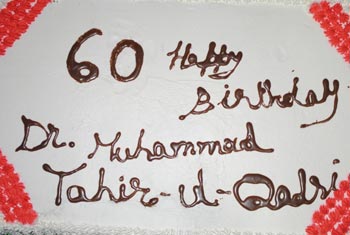 60 Happy
Birthday
Dr. Muhammad
Tahir-ul-Qadri